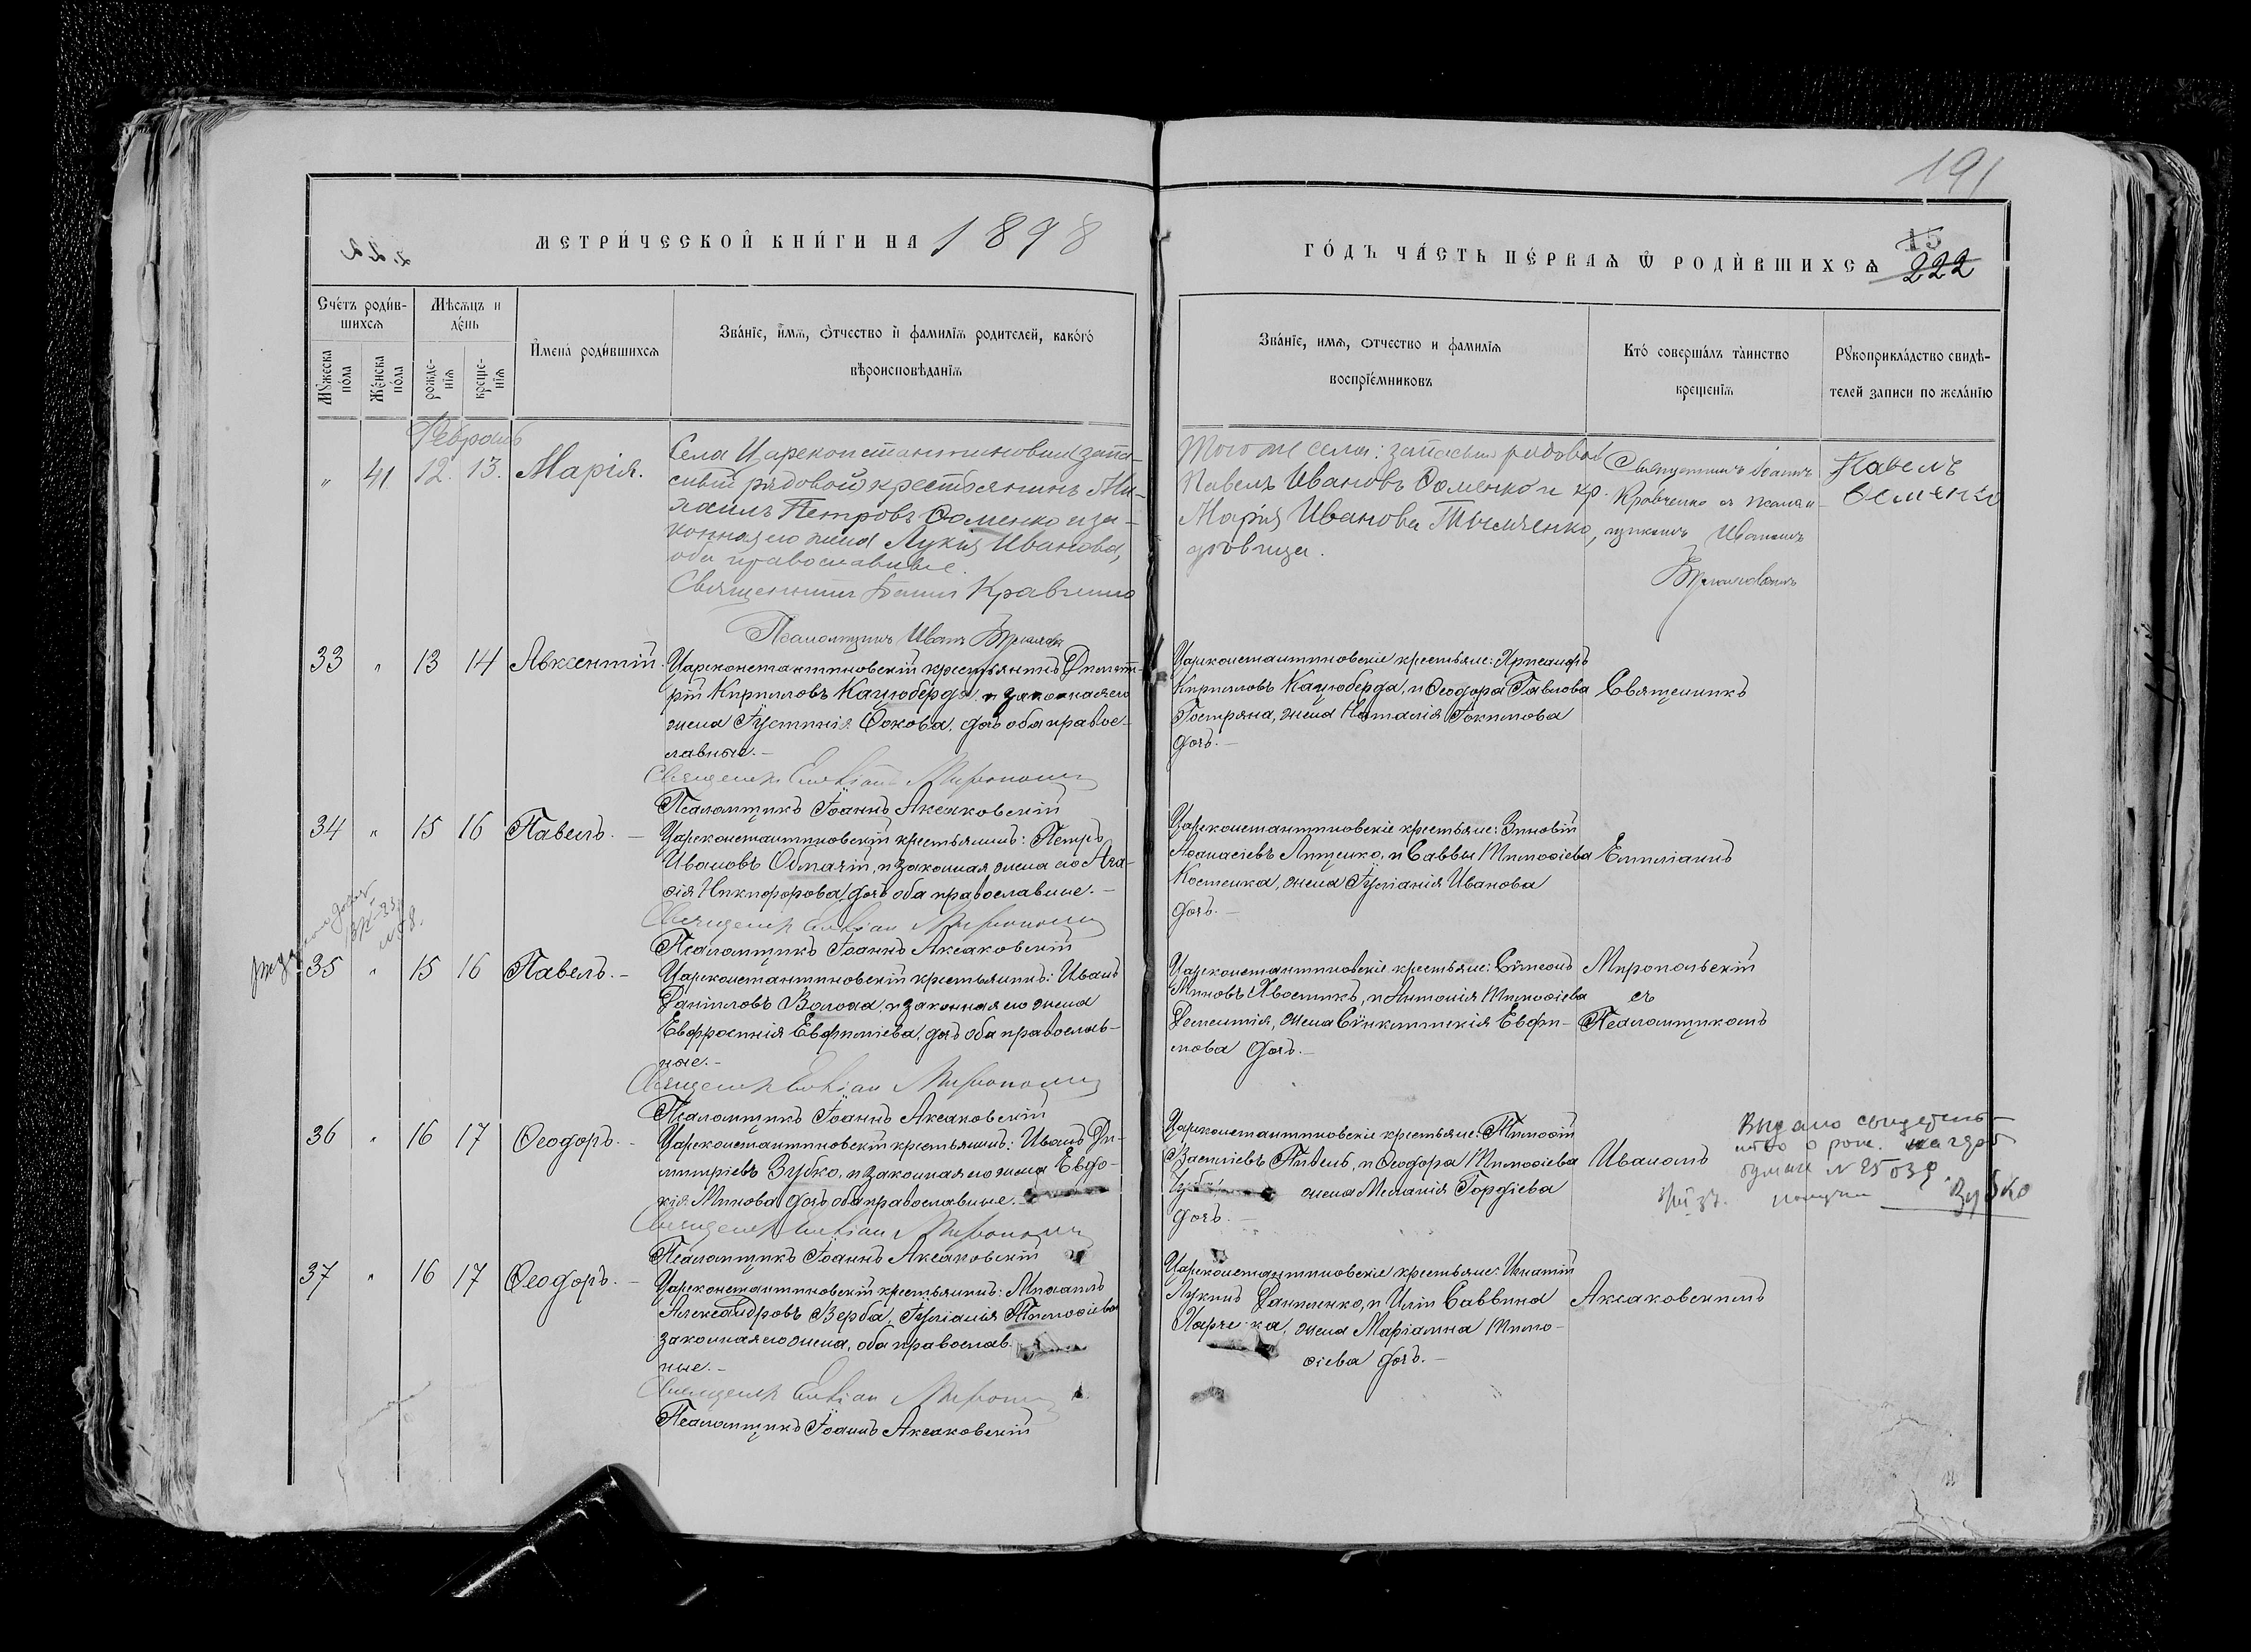 191
МЕТРИ́ЧЕСКОЙ КНИ́ГИ НА 1898
ГО́ДЪ ЧА́СТЬ ПЕ́РВАѦ Ѽ РОДИ́ВШИХСѦ
15
222
Счетъ роди́в-
шихсѧ
Мѣсѧцъ и
де́нь
Мꙋ́жеска
по́ла
Же́нска
по́ла
рожде-
нїѧ
креще-
нїѧ
И҆мена̀ роди́вшихсѧ
Зва́нїе, и҆́мѧ, ѻ҆́тчество и҆ фамилїѧ родителей, како́гѡ
вѣроисповѣ́данїѧ
Зва́нїе, имѧ, ѻтчество и фамилїѧ
воспрїе́мниковъ
Кто̀ соверша́лъ та̀инство
креще́нїѧ
Рꙋкоприкла́дство свидѣ-
телей записи по жела́нїю
Февраль
" 41. 12. 13. Марія.
Села Цареконстантиновки запа-
сный рядовой крестьянинъ Ми-
хаилъ Петровъ Ѳоменко и за-
конная его жена Лукія Иванова,
оба православные.
Священникъ Іоаннъ Кравченко
Псаломщикъ Иванъ
Того же села: запасный рядовой
Павелъ Ивановъ Ѳоменко и кр.
Марія Иванова
дѣвица.
Священникъ Іоаннъ
Кравченко съ псалом-
щикомъ Иваномъ
Павелъ
Ѳоменко
33 " 13 14 Авксентій.
Цареконстантиновскій крестьянинъ Димит-
рій Кирилловъ Кацюберда, и законная его
жена Іустинія Ѳокова, дочь оба правос-
лавные.-
Псаломщикъ Іоаннъ Аксаковскій
Цареконстантиновскіе крестьяне: Хрисанфъ
Кирилловъ Кацюберда, и Ѳеодора Павлова
Гостряна, жена Наталія Іокимова
дочь.-
Священникъ
34 " 15 16 Павелъ.-
Цареконстантиновскій крестьянинъ: Петръ
Ивановъ и законная жена его Ага-
ѳія Никифорова, дочь оба православные.-
Псаломщикъ Іоаннъ Аксаковскій
Цареконстантиновскіе крестьяне: Зиновій
Аѳанасіевъ Лященко, и Саввы Тимоѳіева
Костенка, жена Іуліанія Иванова
дочь.-
Емиліанъ
35 " 15 16 Павелъ.-
Цареконстантиновскій крестьянинъ: Иванъ
Даніиловъ Волоха, и законная его жена
Евфросинія Евфиміева, дочь оба православ-
ные.-
Псаломщикъ Іоаннъ Аксаковскій
Цареконстантиновскіе крестьяне: Сѵмеонъ
Миновъ Хвостикъ, и Антонія Тимоѳіева
Дементія, жена Сѵнклитикія Евфи-
мова дочь.-
Миропольскій
съ
Псаломщикомъ
36 " 16 17 Ѳеодоръ.-
Цареконстантиновскій крестьянинъ: Иванъ Ди-
митріевъ Зубко, и законная его жена Евдо-
кія Минова дочь оба православные.-
Псаломщикъ Іоаннъ Аксаковскій
Цареконстантиновскіе крестьяне: Тимоѳій
Василіевъ Пивень, и Ѳеодора Тимоѳіева
жена Меланія Гордіева
дочь.-
Иваномъ
Выдано свидетель-
ство о рож.
N 25039.
Зубко
37 " 16 17 Ѳеодоръ.-
Цареконстантиновскій крестьянинъ: Михаилъ
Александровъ Верба, Іуліанія Тимоѳіева
законная его жена, оба православ-
ные.-
Псаломщикъ Іоаннъ Аксаковскій
Цареконстантиновскіе крестьяне: Игнатій
Лукинъ Даниленко, и Иліи Саввина
жена Маріамна Тимо-
ѳіева дочь.-
Аксаковскимъ